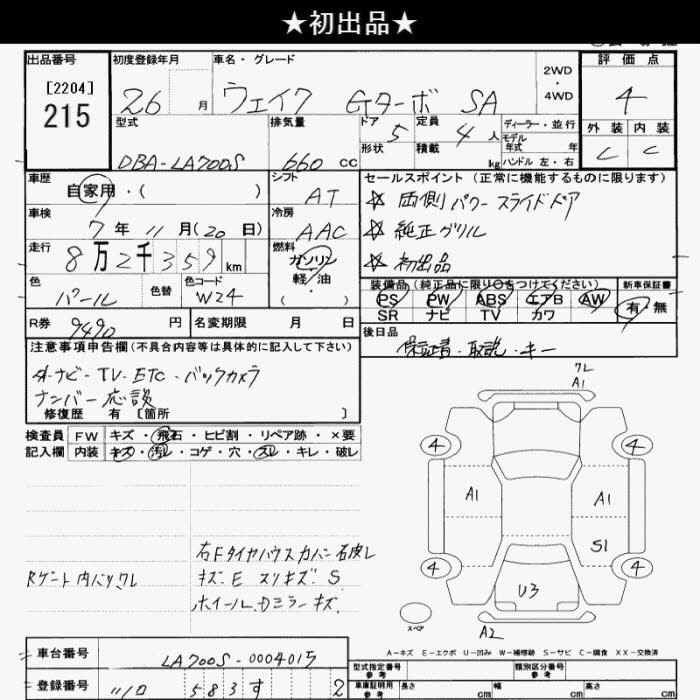 ★初出品★
出品番号 初度登録年月 車名・グレード 評価点
[2204]
215
26 月 ウェイク Gターボ SA
2WD
・
4WD
4
外装 内装
C C
型式 排気量 ドア 5 定員 4 人 ディーラー・並行
形状 積載 kg モデル年式 年
ハンドル 左・右
DBA-LA700S 660 cc
車歴 シフト セールスポイント (正常に機能するものに限ります)
自家用・( ) AT
☆ 両側パワースライドドア
車検 冷房
7年 11月 (20日) AAC
☆ 純正グリル
走行 燃料
8万2千359 km ガソリン
軽・油
☆ 初出品
色 色替 色コード
パール W24
( )
装備品 (純正品に限り○をつけてください) 新車保証書
PS PW ABS エアB AW 有・無
SR ナビ TV カワ
R券 9490 円 名変期限 月 日
後日品
保証書・取説・キー
注意事項申告欄(不具合内容等は具体的に記入して下さい)
外ナビ・TV・ETC・バックカメラ
ナンバー応談
修復歴 有 〔箇所 〕
検査員 FW キズ・飛石・ヒビ割・リペア跡・×要
記入欄 内装 キズ・汚レ・コゲ・穴・スレ・キレ・破レ
ワレ
A1
4 4
A1 A1
S1
4 4
U3
A2
スペア
Rゲート内バリワレ
キズ、E スリキズ S
A-キズ E-エクボ U-凹み W-補修跡 S-サビ C-腐食 XX-交換済
車台番号 LA700S-0004015
登録番号 5835 2
型式指定番号 参考 類別区分番号 参考
車庫証明用 参考 長さ cm 幅 cm 高さ cm